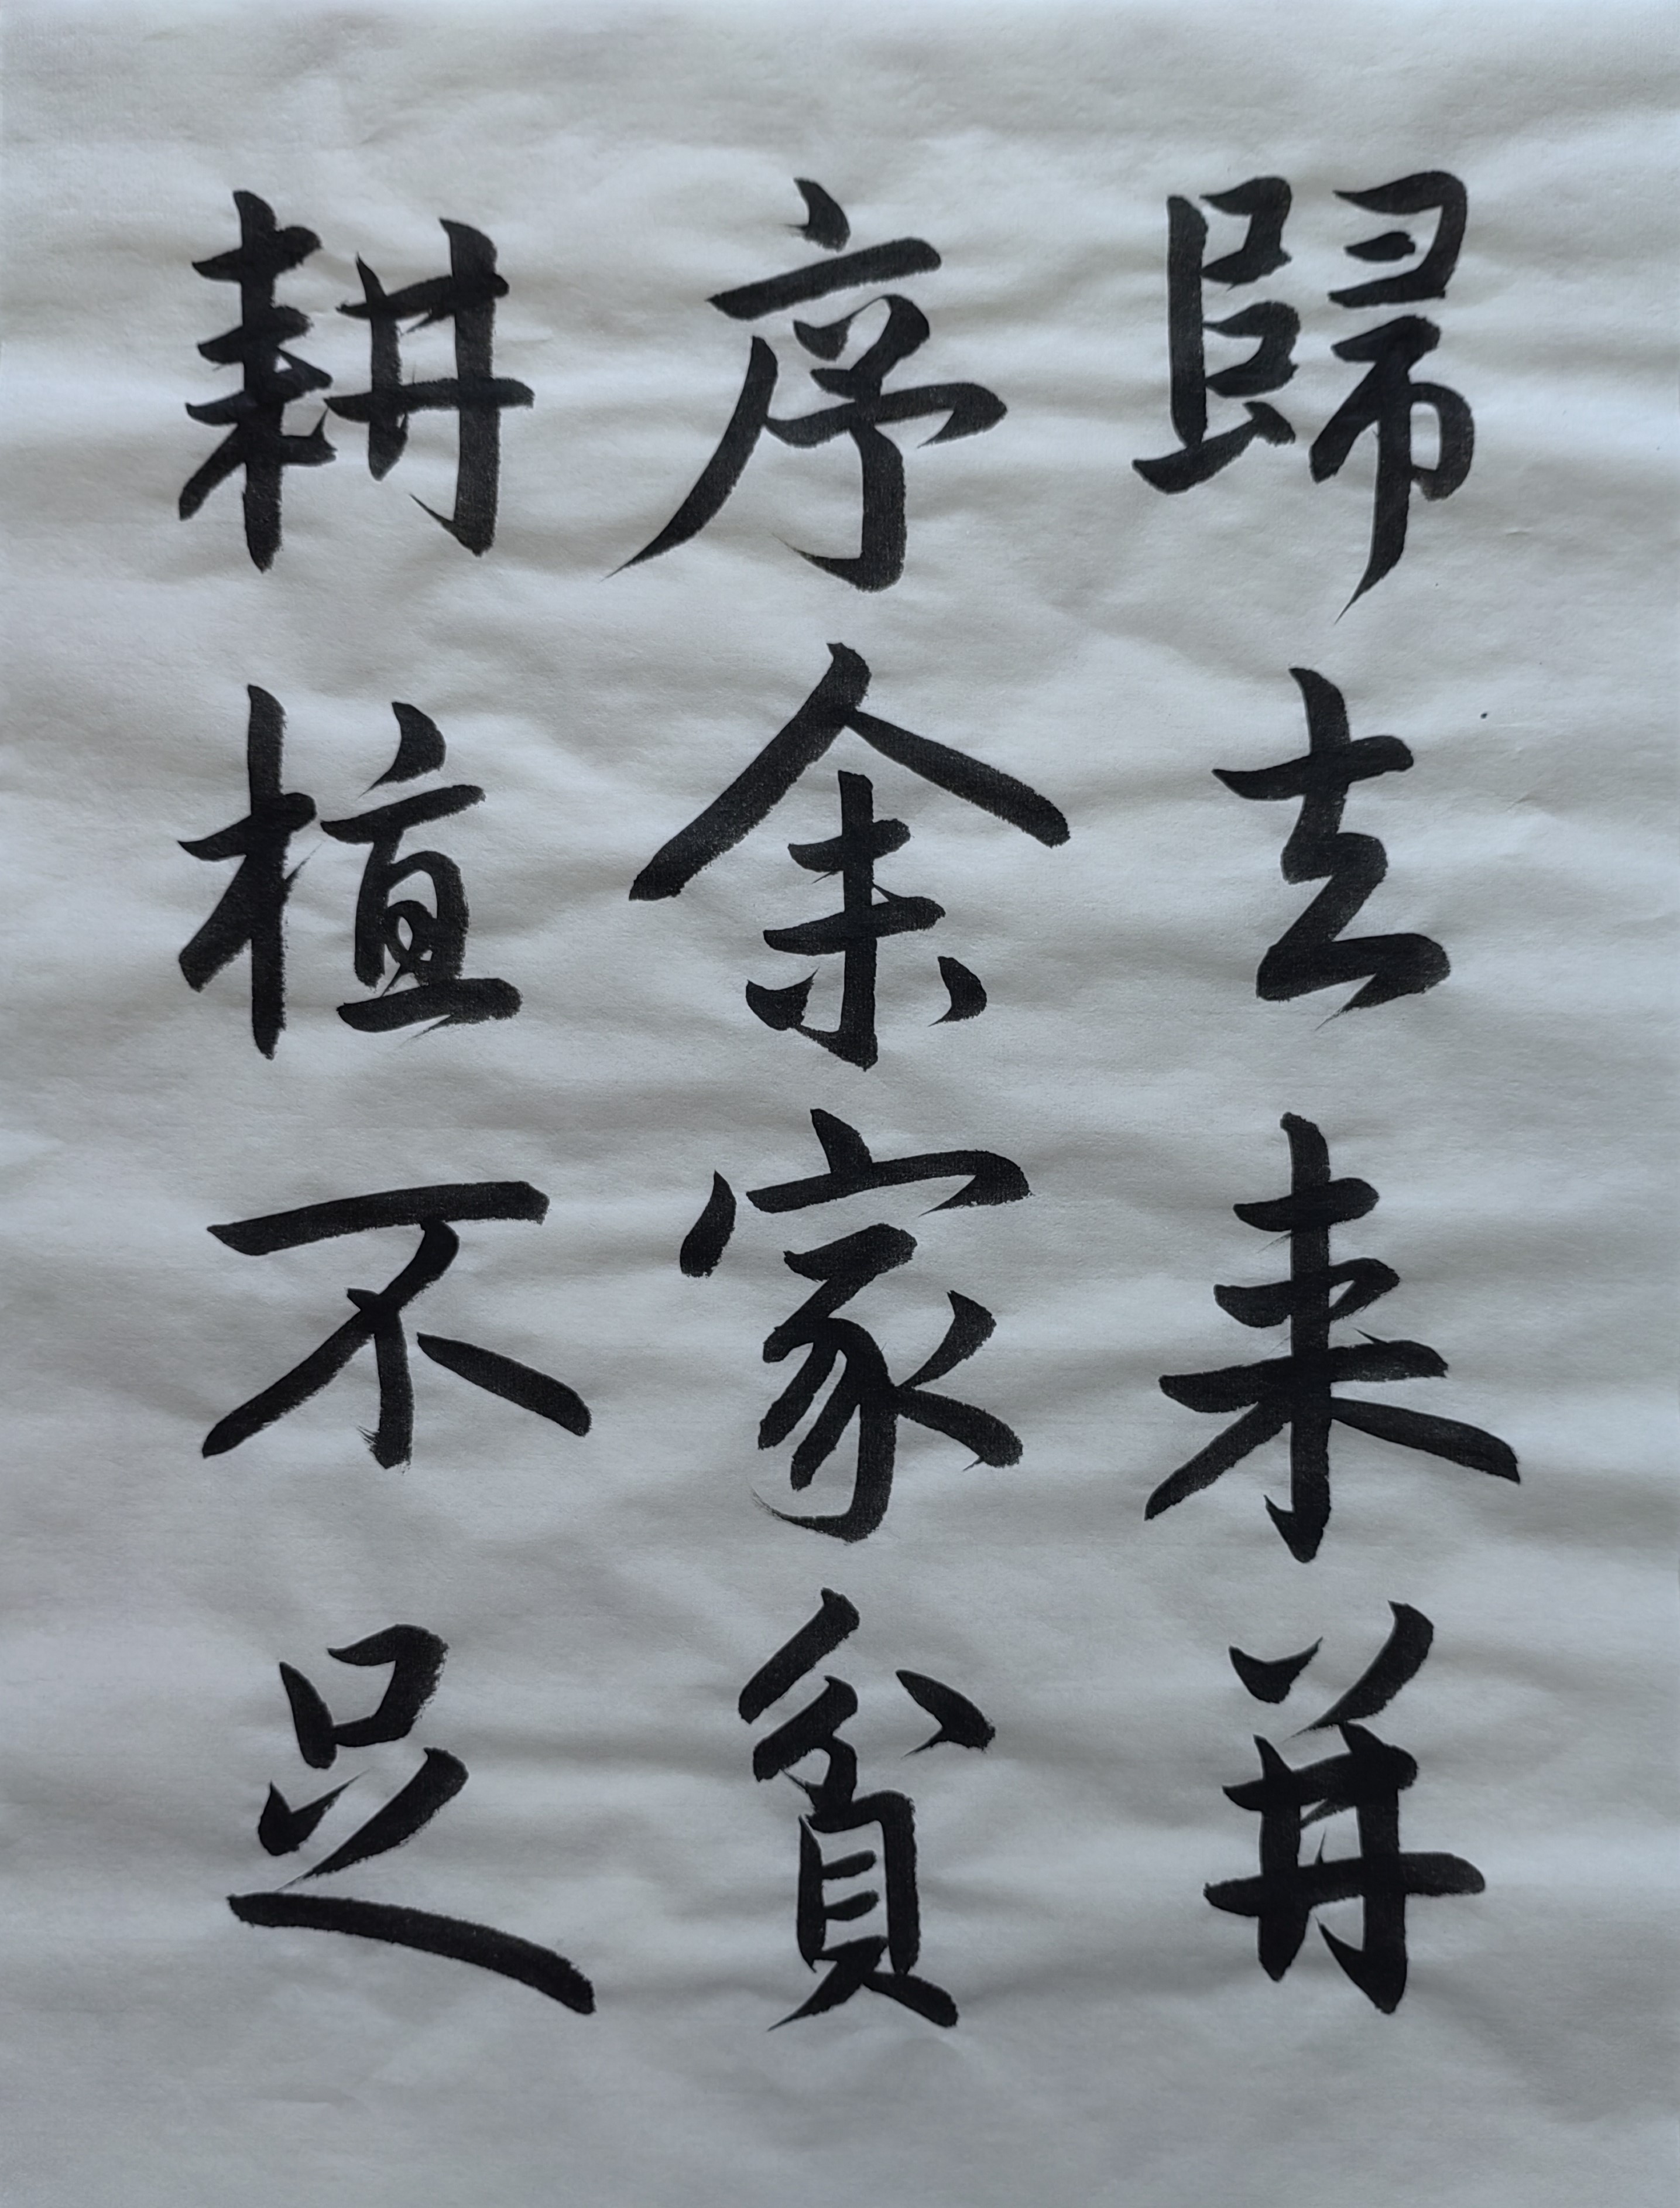 歸去来并
序余家貧
耕植不足